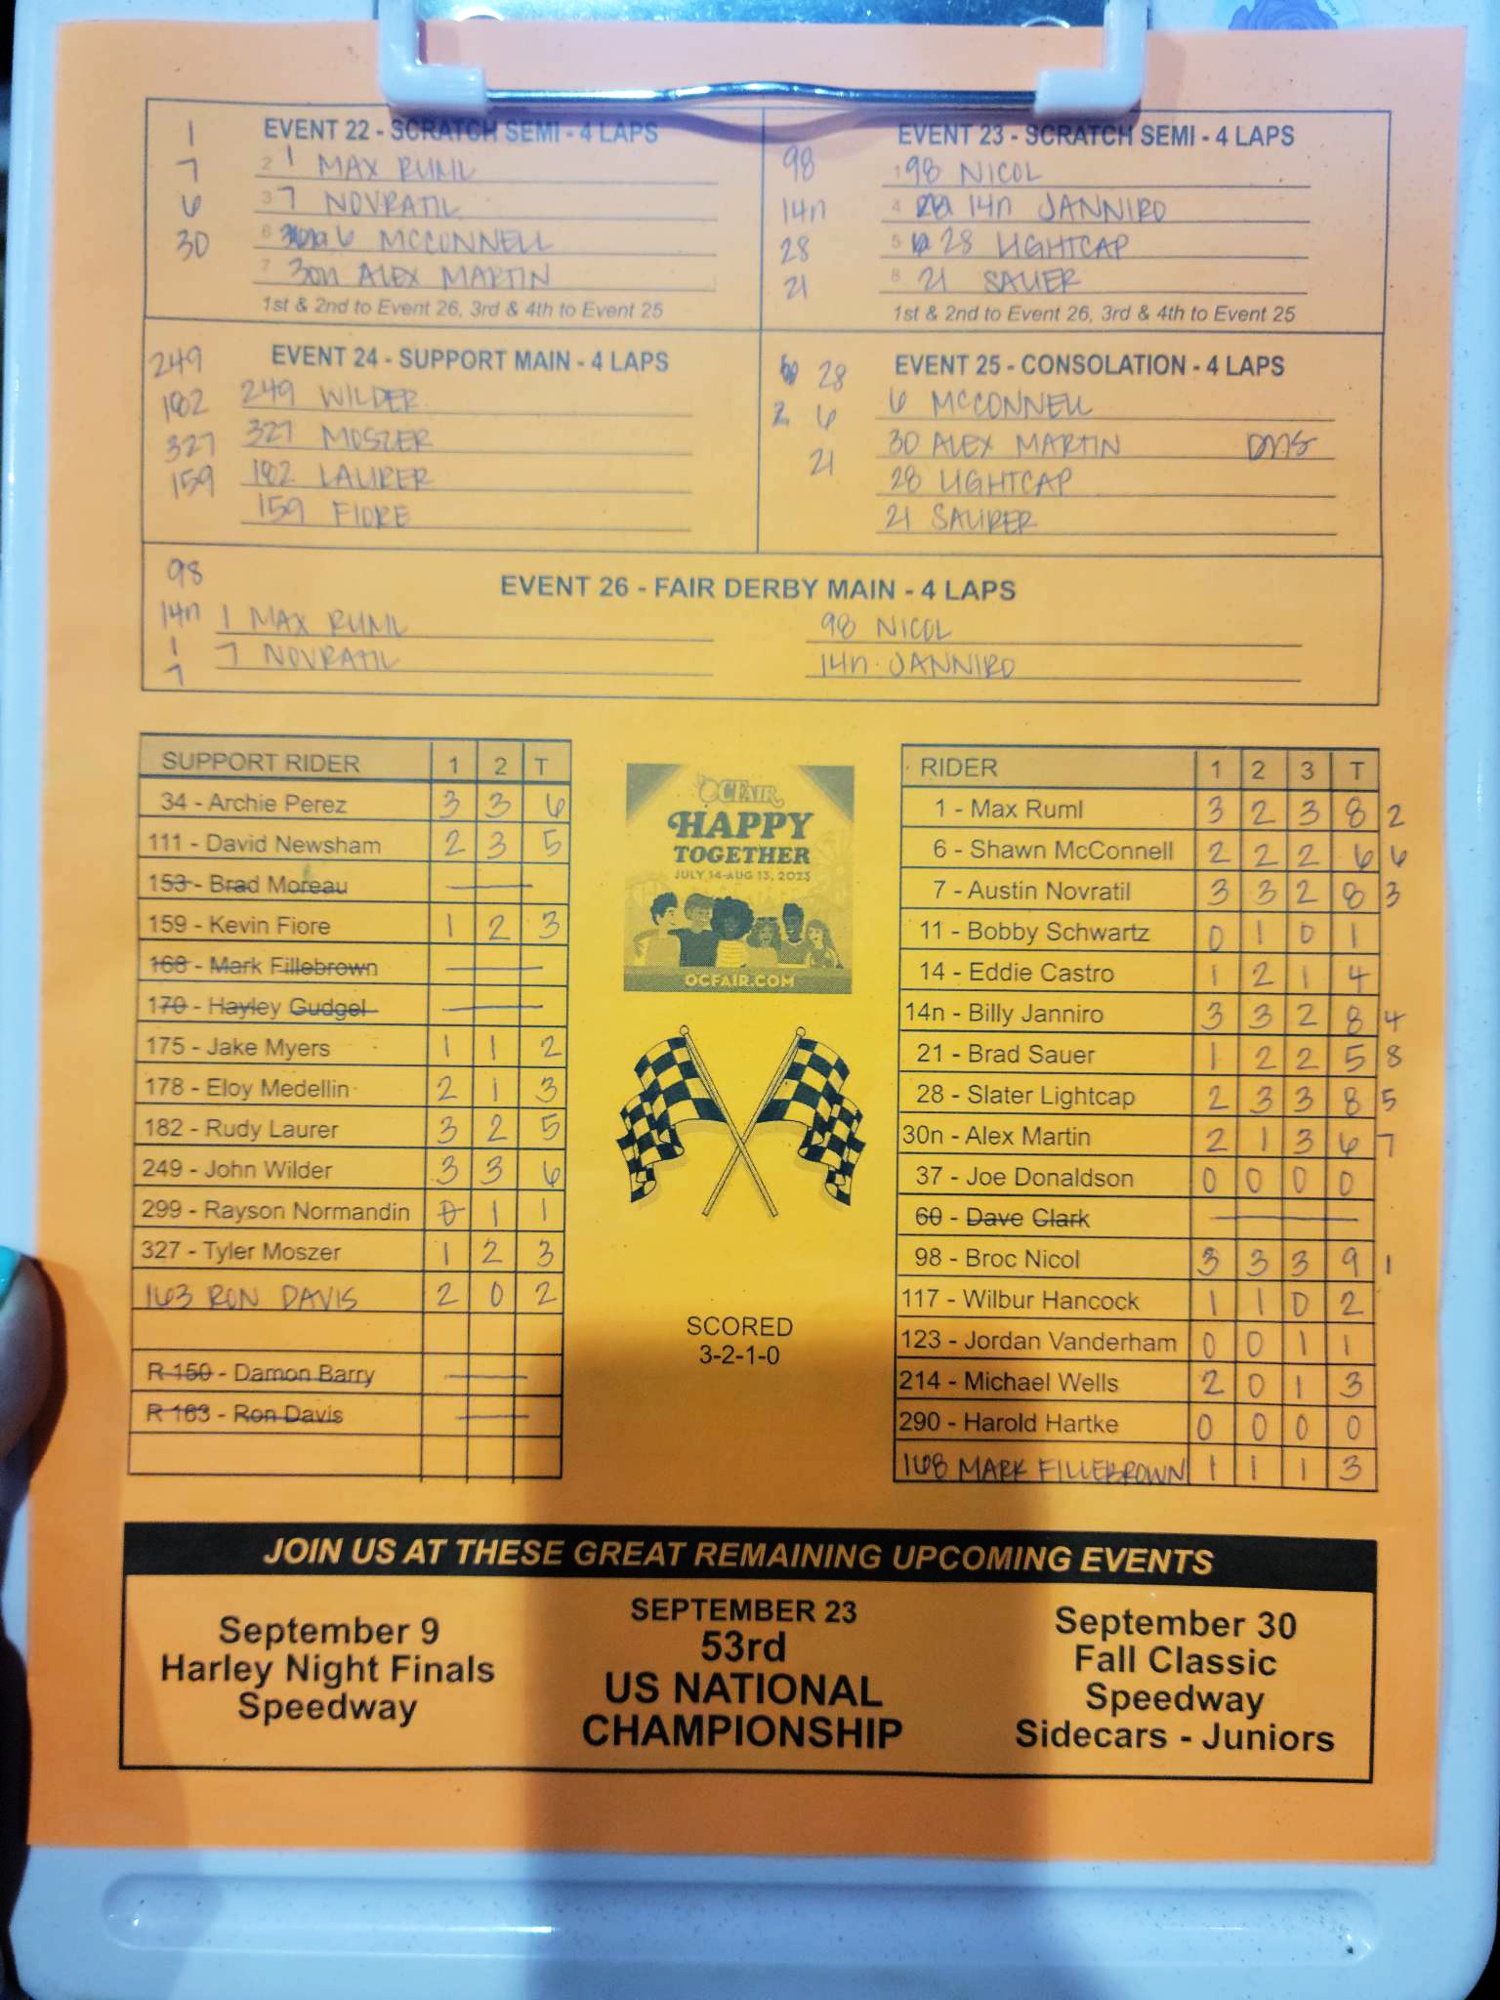 EVENT 22 - SCRATCH SEMI - 4 LAPS
1
7
6
30
2 1 MAX RUML
3 7 NOVRATIL
6 6 MCCONNELL
7 30n ALEX MARTIN
1st & 2nd to Event 26, 3rd & 4th to Event 25
EVENT 23 - SCRATCH SEMI - 4 LAPS
98
14n
28
21
1 98 NICOL
4 14n JANNIRO
5 28 LIGHTCAP
8 21 SAUER
1st & 2nd to Event 26, 3rd & 4th to Event 25
EVENT 24 - SUPPORT MAIN - 4 LAPS
249
182
327
159
249 WILDER
327 MOSZER
182 LAURER
159 FIORE
EVENT 25 - CONSOLATION - 4 LAPS
28
2 6
21
6 MCCONNELL
30 ALEX MARTIN DNS
28 LIGHTCAP
21 SAURER
EVENT 26 - FAIR DERBY MAIN - 4 LAPS
98
14n
1
7
1 MAX RUML
7 NOVRATIL
98 NICOL
14n JANNIRO
SUPPORT RIDER 1 2 T
34 - Archie Perez 3 3 6
111 - David Newsham 2 3 5
153 - Brad Moreau
159 - Kevin Fiore 1 2 3
168 - Mark Fillebrown
170 - Hayley Gudgel
175 - Jake Myers 1 1 2
178 - Eloy Medellin 2 1 3
182 - Rudy Laurer 3 2 5
249 - John Wilder 3 3 6
299 - Rayson Normandin 0 1 1
327 - Tyler Moszer 1 2 3
163 RON DAVIS 2 0 2
R-150 - Damon Barry
R 163 - Ron Davis
OC FAIR
HAPPY
TOGETHER
JULY 14-AUG 13, 2023
OCFAIR.COM
SCORED
3-2-1-0
RIDER 1 2 3 T
1 - Max Ruml 3 2 3 8 2
6 - Shawn McConnell 2 2 2 6 6
7 - Austin Novratil 3 3 2 8 3
11 - Bobby Schwartz 0 1 0 1
14 - Eddie Castro 1 2 1 4
14n - Billy Janniro 3 3 2 8 4
21 - Brad Sauer 1 2 2 5 8
28 - Slater Lightcap 2 3 3 8 5
30n - Alex Martin 2 1 3 6 7
37 - Joe Donaldson 0 0 0 0
60 - Dave Clark
98 - Broc Nicol 3 3 3 9 1
117 - Wilbur Hancock 1 1 0 2
123 - Jordan Vanderham 0 0 1 1
214 - Michael Wells 2 0 1 3
290 - Harold Hartke 0 0 0 0
168 MARK FILLEBROWN 1 1 1 3
JOIN US AT THESE GREAT REMAINING UPCOMING EVENTS
September 9
Harley Night Finals
Speedway
SEPTEMBER 23
53rd
US NATIONAL
CHAMPIONSHIP
September 30
Fall Classic
Speedway
Sidecars - Juniors